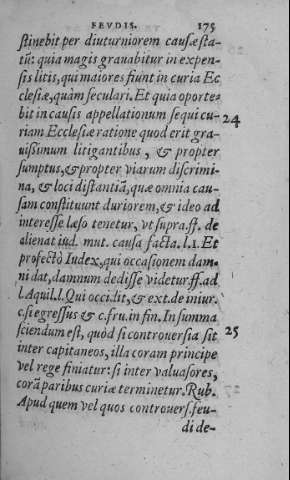 FEVDIS. 175
stinebit per diuturniorem causæ sta-
tũ: quia magis grauabitur in expen-
sis litis, qui maiores fiunt in curia Ec
clesiæ, quàm seculari. Et quia oporte-
bit in causis appellationum sequi cu- 24
riam Ecclesiæ ratione quod erit gra-
uissimum litigantibus, & propter
sumptus, & propter viarum discrimi-
na, & loci distantiã, quæ omnia cau-
sam constituunt duriorem, & ideo ad
interesse læso tenetur, vt supra. ff. de
alienat iud. mut. causa facta. l.1. Et
profectò Iudex, qui occasionem dam-
ni dat, damnum dedisse videtur. ff. ad
l. Aquil. l. Qui occidit, & ext. de iniur.
c. si egressus & c. fru. in fin. In summa
sciendum est, quòd si controuersia sit 25
inter capitaneos, illa coram principe
vel rege finiatur: si inter valuasores,
corã paribus curiæ terminetur. Rub.
Apud quem vel quos controuers. feu-
di de-